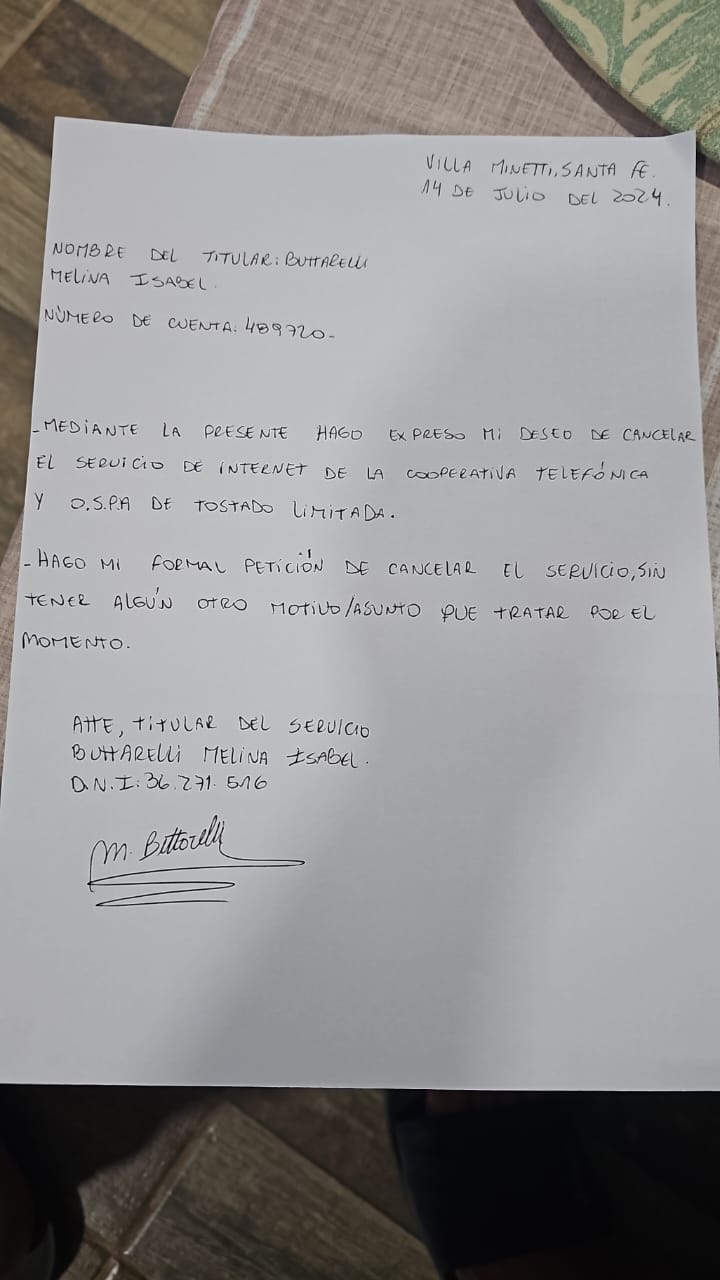 VILLA MINETTI, SANTA FE.
14 DE JULIO DEL 2024.
NOMBRE DEL TITULAR: BUTTARELLI
MELINA ISABEL.
NÙMERO DE CUENTA: 489720-
-MEDIANTE LA PRESENTE HAGO EXPRESO MI DESEO DE CANCELAR
EL SERVICIO DE INTERNET DE LA COOPERATIVA TELEFÓNICA
Y O.S.P.A DE TOSTADO LIMITADA.
-HAGO MI FORMAL PETICIÓN DE CANCELAR EL SERVICIO, SIN
TENER ALGÚN OTRO MOTIVO/ASUNTO QUE TRATAR POR EL
MOMENTO.
ATTE, TITULAR DEL SERVICIO
BUTTARELLI MELINA ISABEL.
D.N.I: 36.271.516
M. Buttarelli